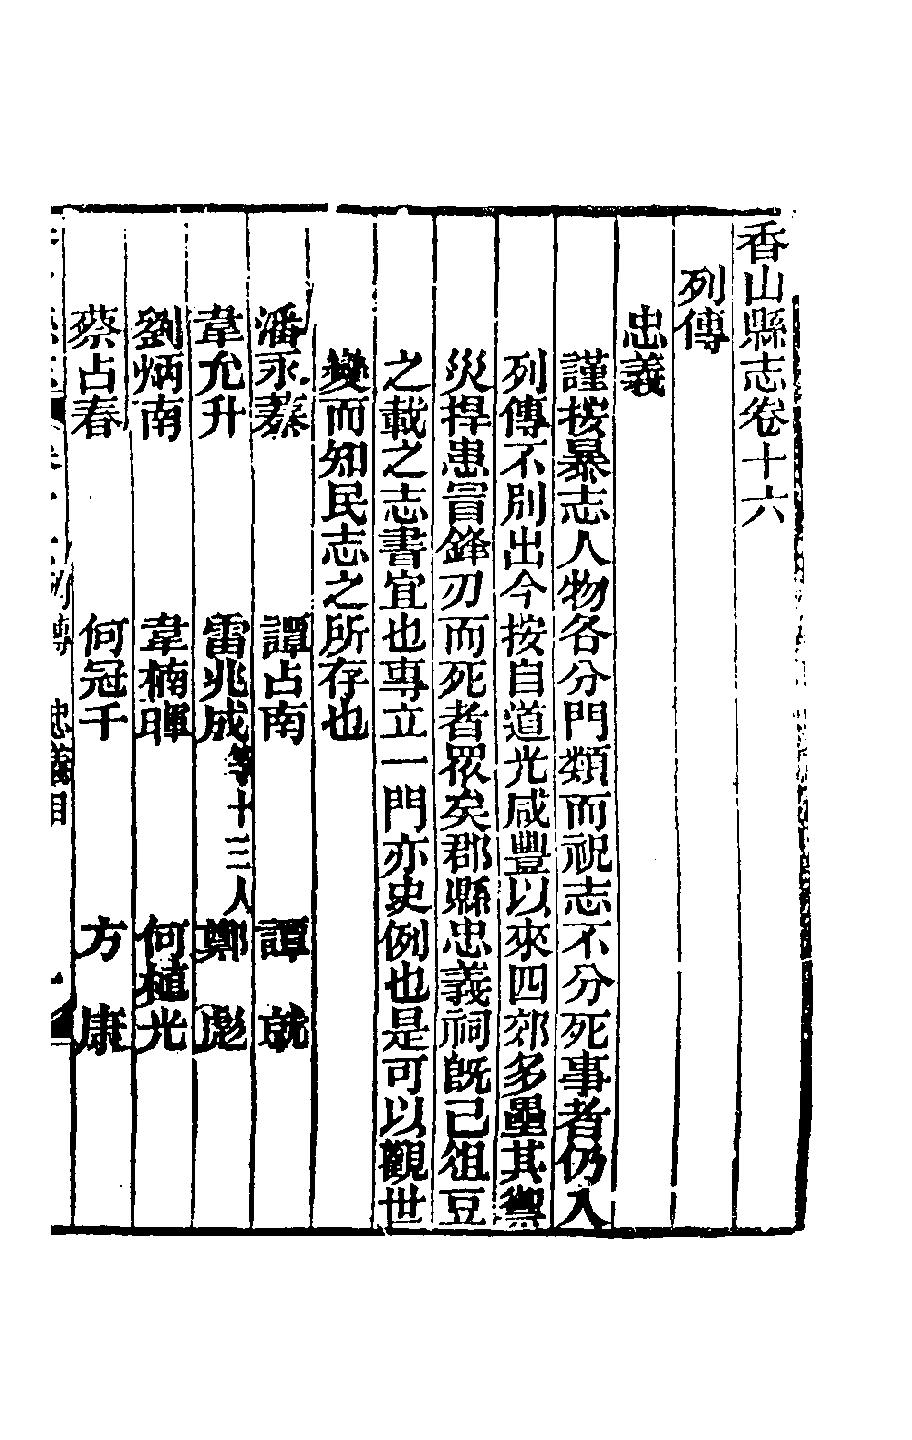 香山縣志卷十六
列傳
忠義
謹按暴志人物各分門類而祝志不分死事者仍入
列傳不別出今按自道光咸豐以來四郊多壘其禦
災捍患冒鋒刃而死者眾矣郡縣忠義祠旣已俎豆
之載之志書宜也專立一門亦史例也是可以觀世
變而知民志之所存也
潘永蓁 譚占南 譚就
韋允升 雷兆成等十三人 鄭彪
劉炳南 韋楠暉 何植光
蔡占春 何冠千 方康
列傳 忠義